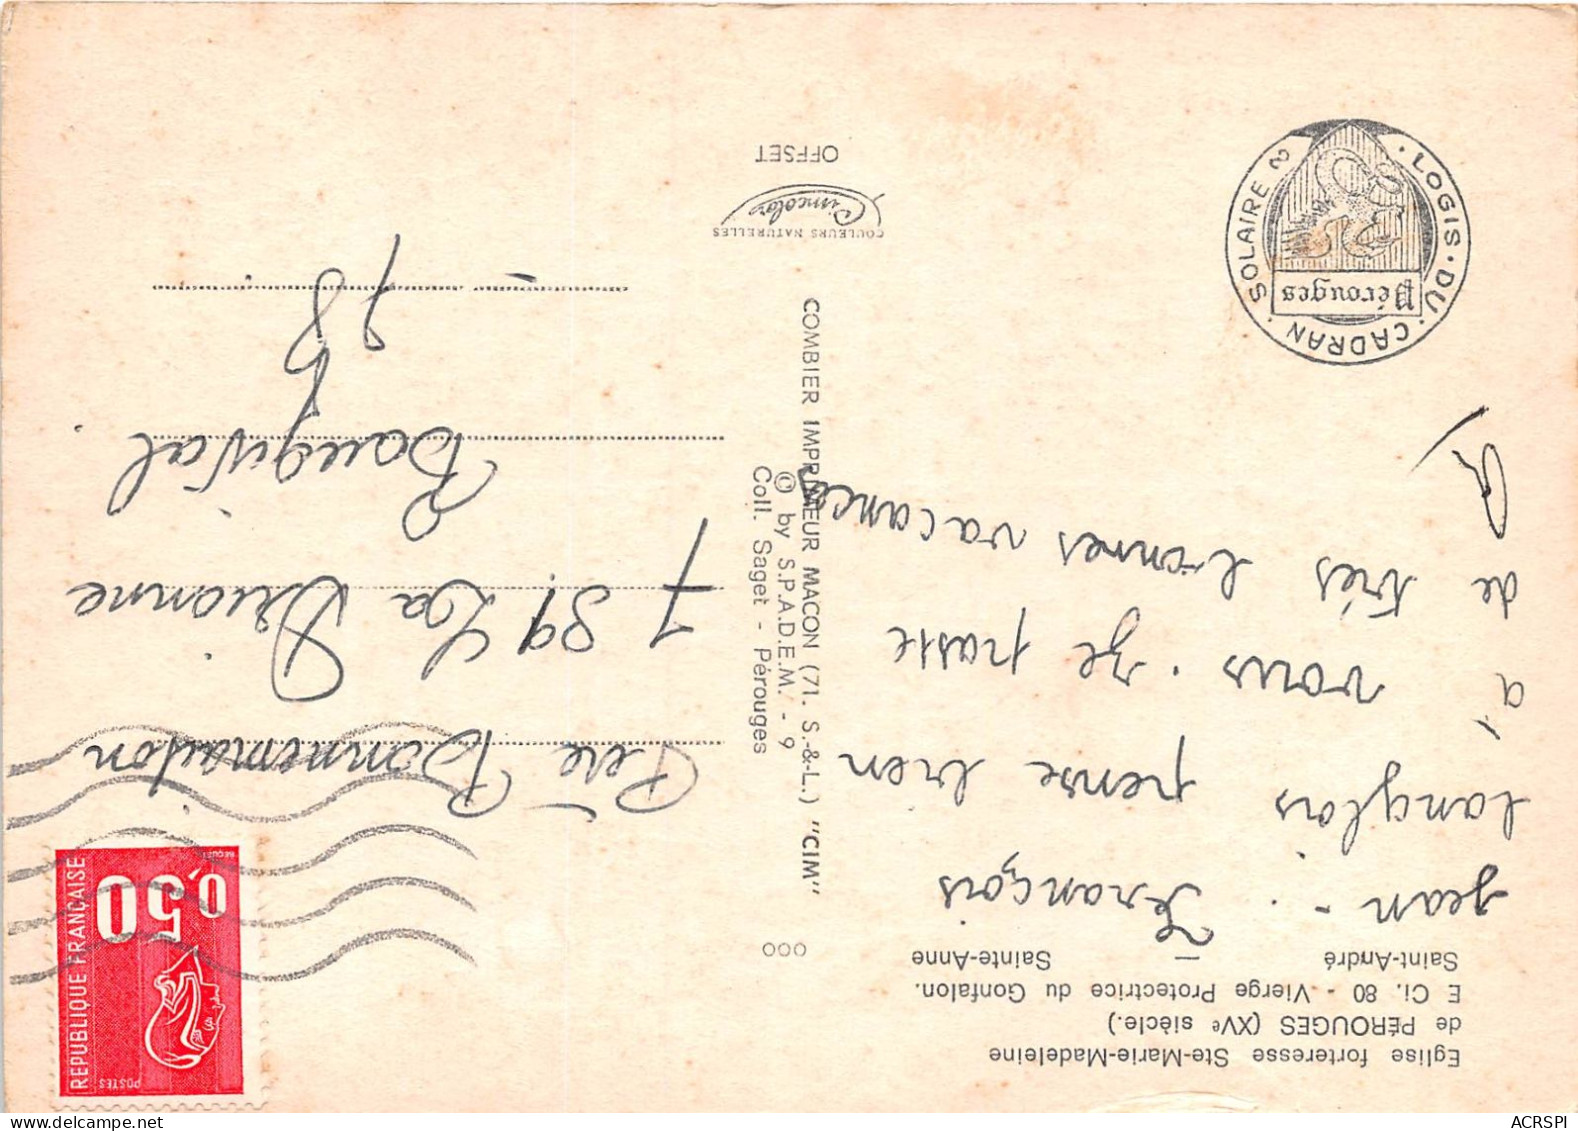 Eglise forteresse Ste-Marie-Madeleine
de PÉROUGES (XVe siècle.)
E Ci. 80 - Vierge Protectrice du Gonfalon.
Saint-André — Sainte-Anne
Jean - François
Langlois pense bien
à vous. Je passe
de très bonnes vacances
LOGIS · DU · CADRAN · SOLAIRE
Pérouges
000
COMBIER IMPRIMEUR MACON (71. S.-&-L.) "CIM"
© by S.P.A.D.E.M. - 9
Coll. Saget - Pérouges
COULEURS NATURELLES
Cimcolor
OFFSET
POSTES
REPUBLIQUE FRANÇAISE
0,50
BEQUET
Père Bonnemaison
Bougival
78
ACRSPI